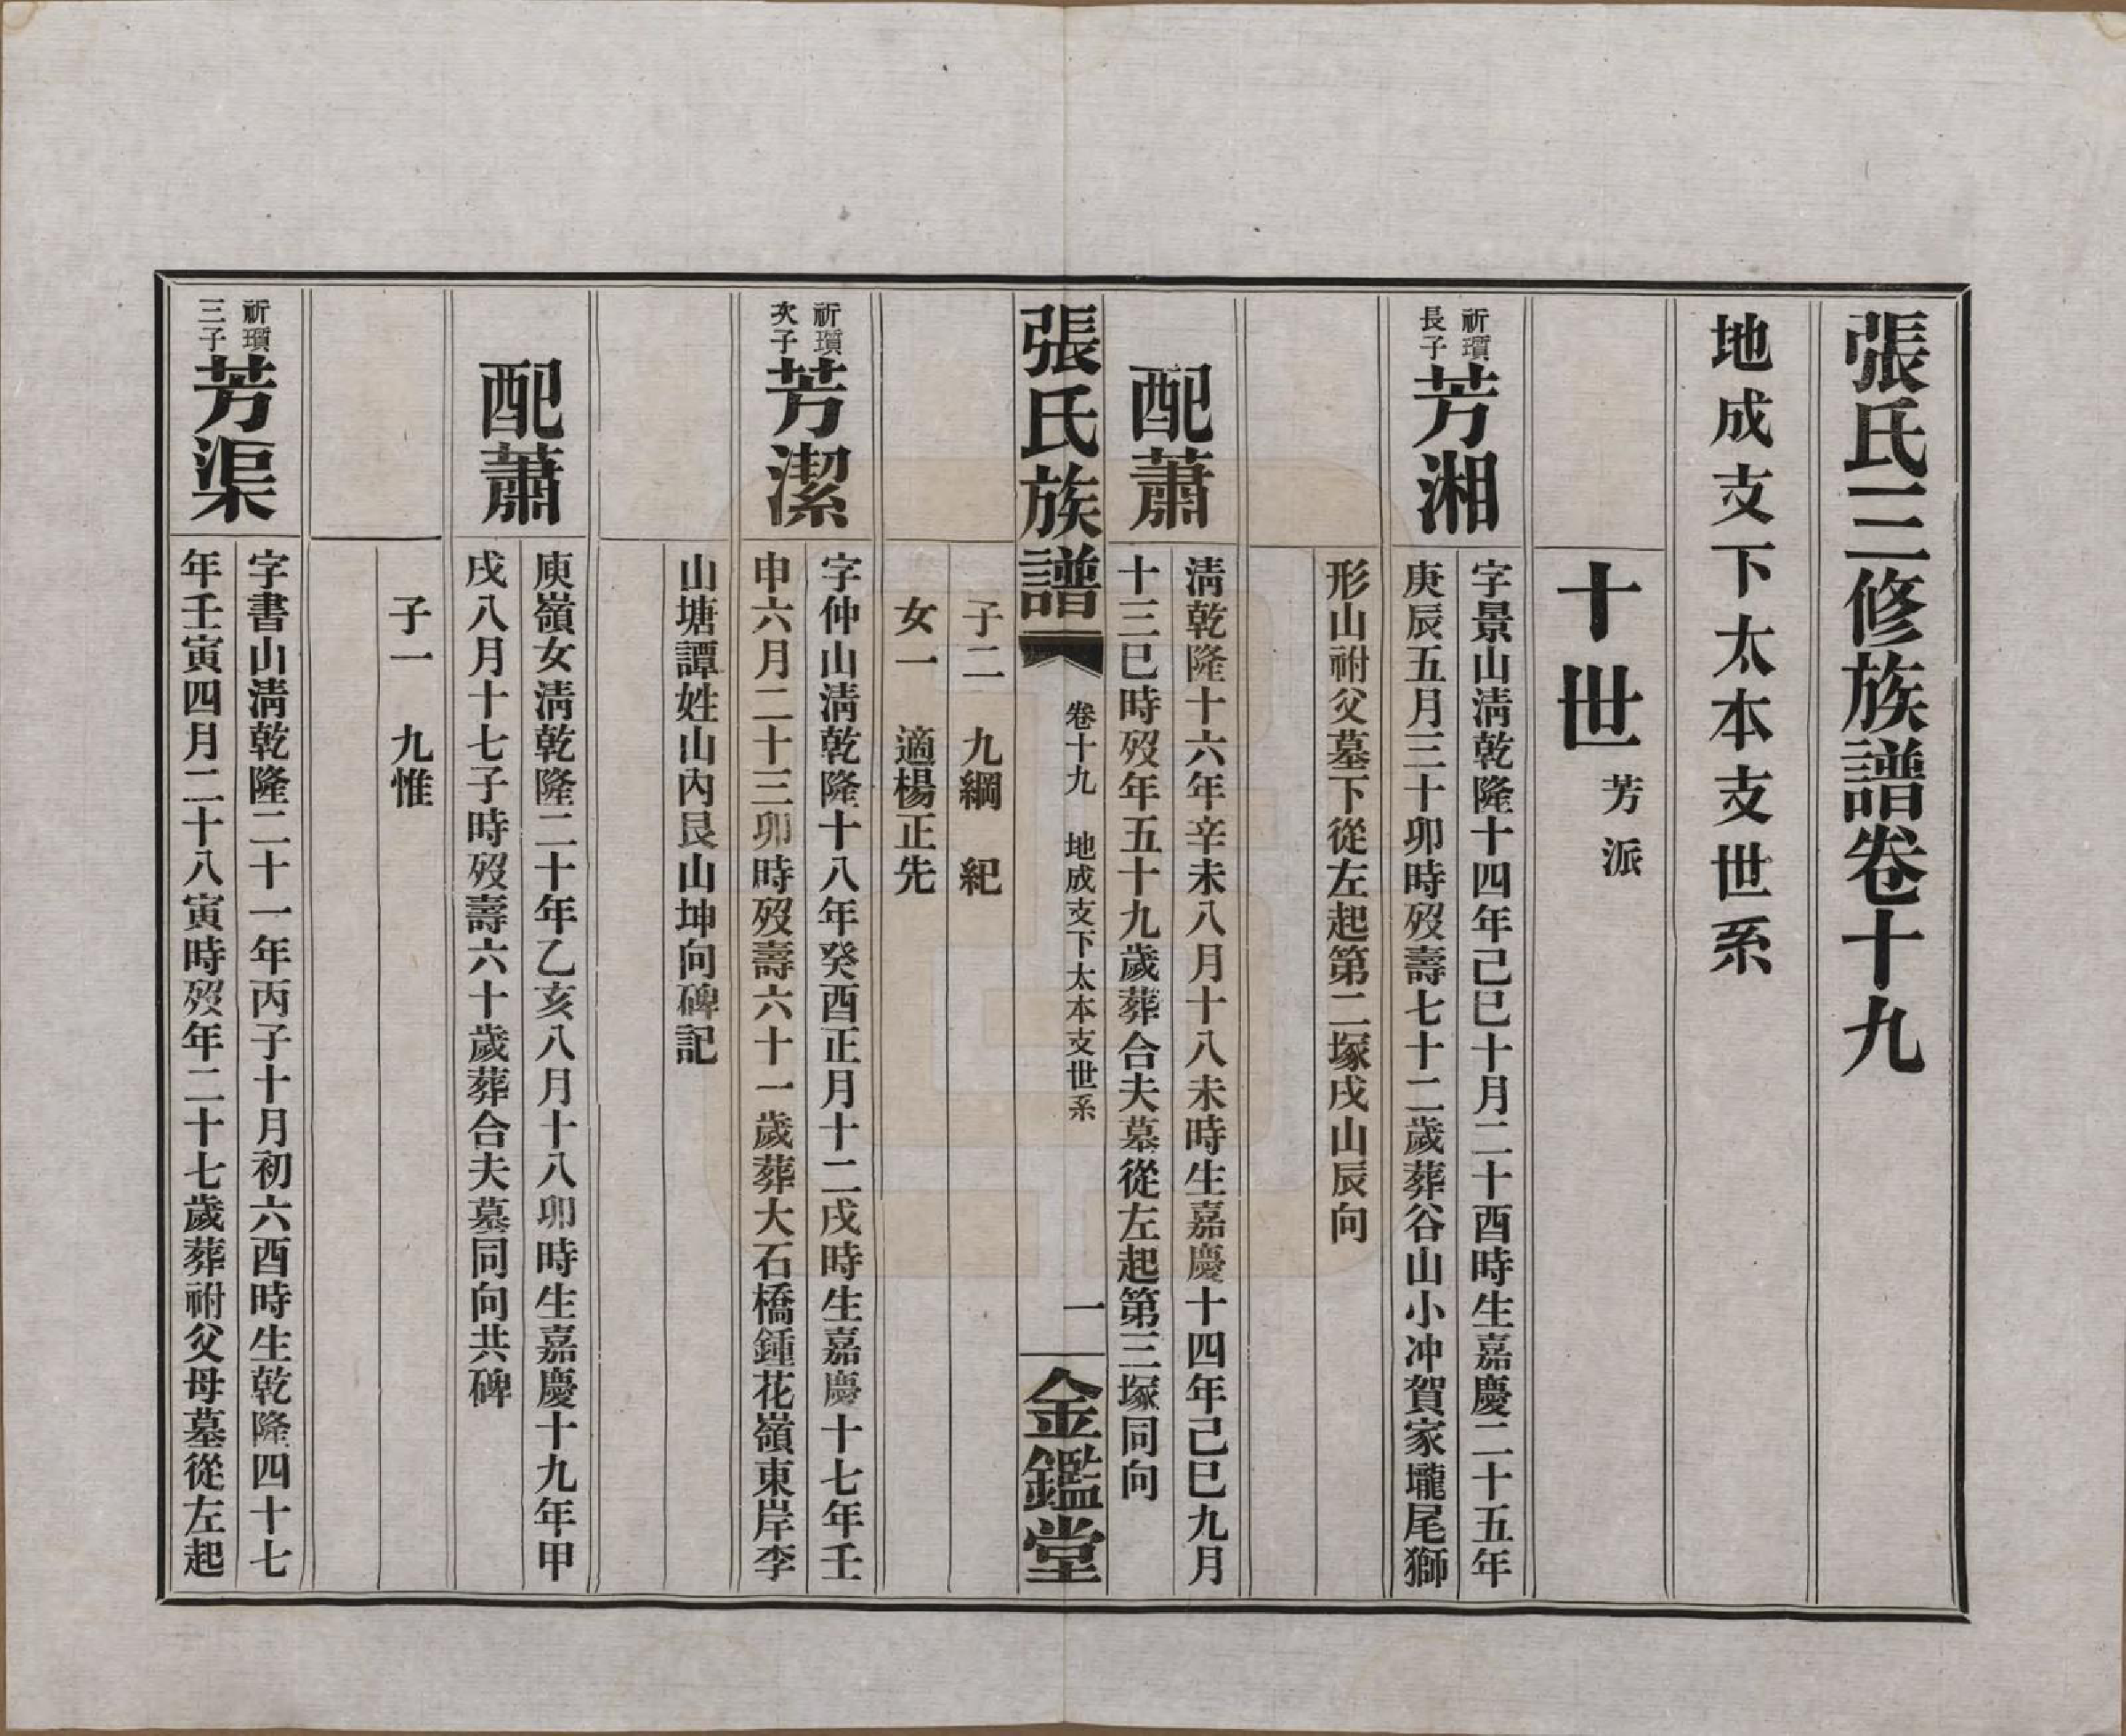 張氏三修族譜卷十九
地成支下太本支世系
十世 芳派
祈瓆長子
芳湘
字景山淸乾隆十四年己巳十月二十酉時生嘉慶二十五年
庚辰五月三十卯時歿壽七十二歲葬谷山小冲賀家壠尾獅
形山祔父墓下從左起第二塚戌山辰向
配蕭
淸乾隆十六年辛未八月十八未時生嘉慶十四年己巳九月
十三巳時歿年五十九歲葬合夫墓從左起第三塚同向
張氏族譜 卷十九 地成支下太本支世系 一 金鑑堂
子二 九綱 紀
女一 適楊正先
祈瓆次子
芳潔
字仲山淸乾隆十八年癸酉正月十二戌時生嘉慶十七年壬
申六月二十三卯時歿壽六十一歲葬大石橋鍾花嶺東岸李
山塘譚姓山內艮山坤向碑記
配蕭
庾嶺女淸乾隆二十年乙亥八月十八卯時生嘉慶十九年甲
戌八月十七子時歿壽六十歲葬合夫墓同向共碑
子一 九惟
祈瓆三子
芳渠
字書山淸乾隆二十一年丙子十月初六酉時生乾隆四十七
年壬寅四月二十八寅時歿年二十七歲葬祔父母墓從左起